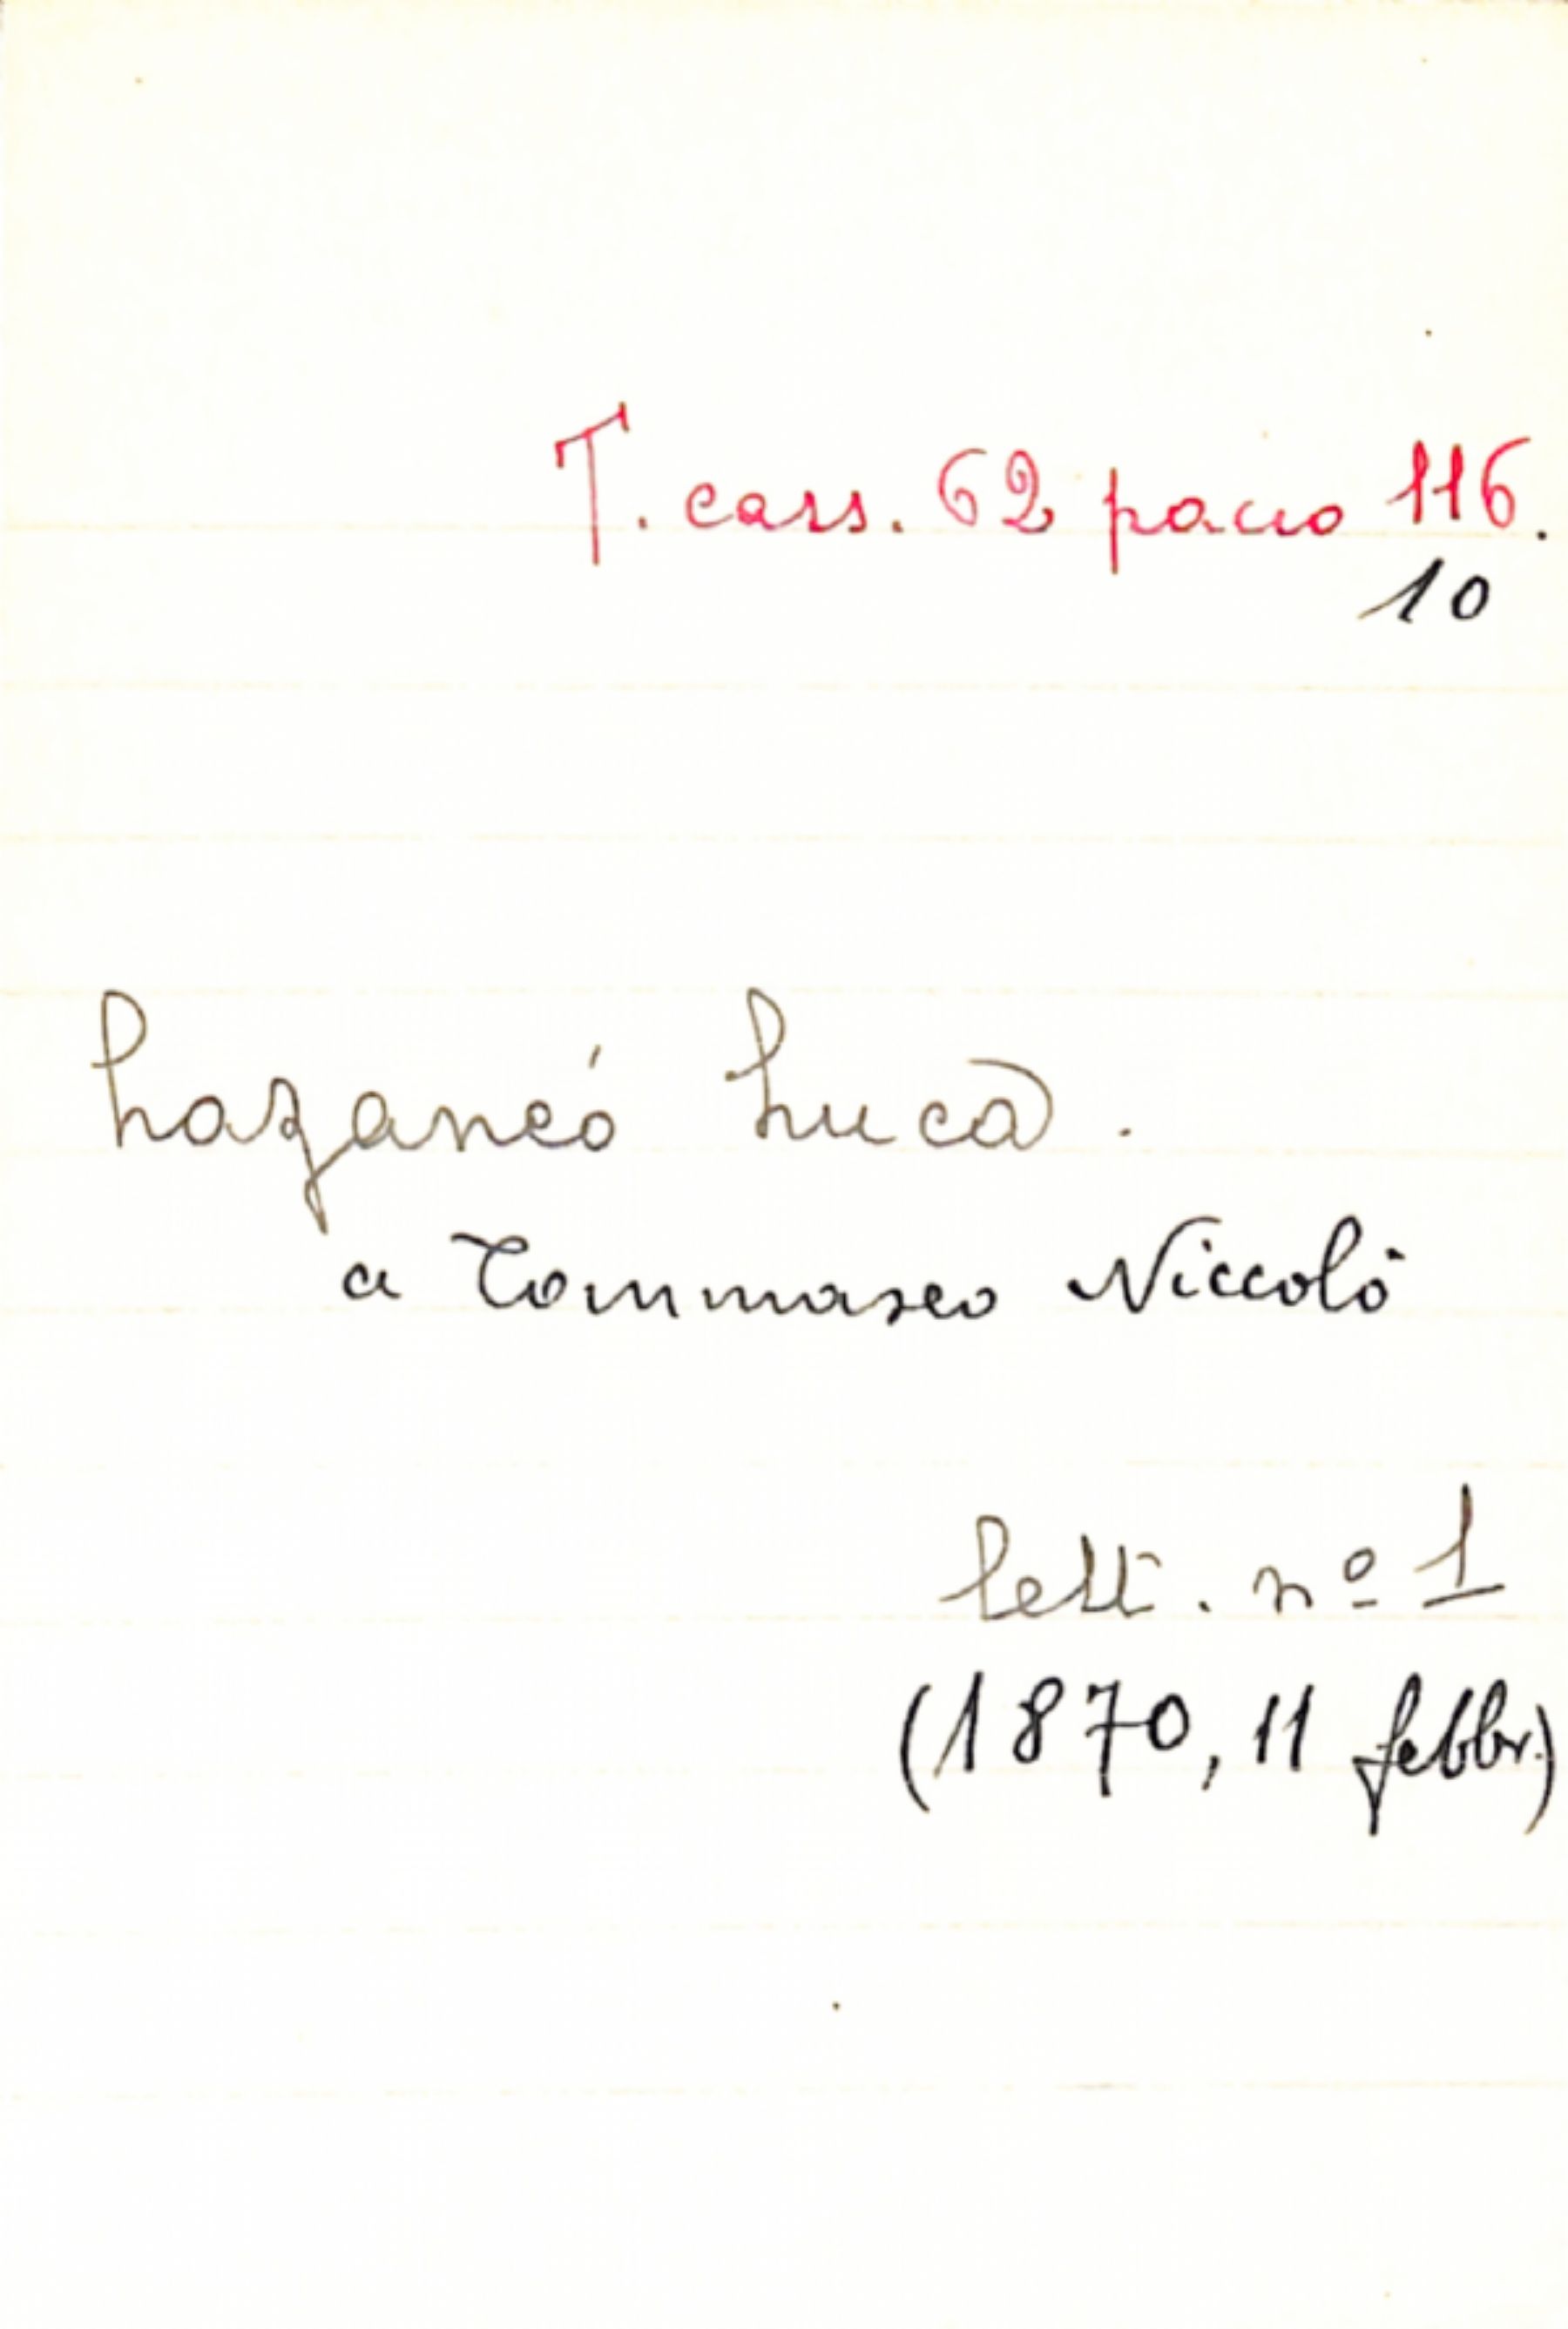 T. cass. 62 pacco 116.
10
Lazaneó Luca.
a Tommaseo Niccolò
lett. nº 1
(1870, 11 febbr.)